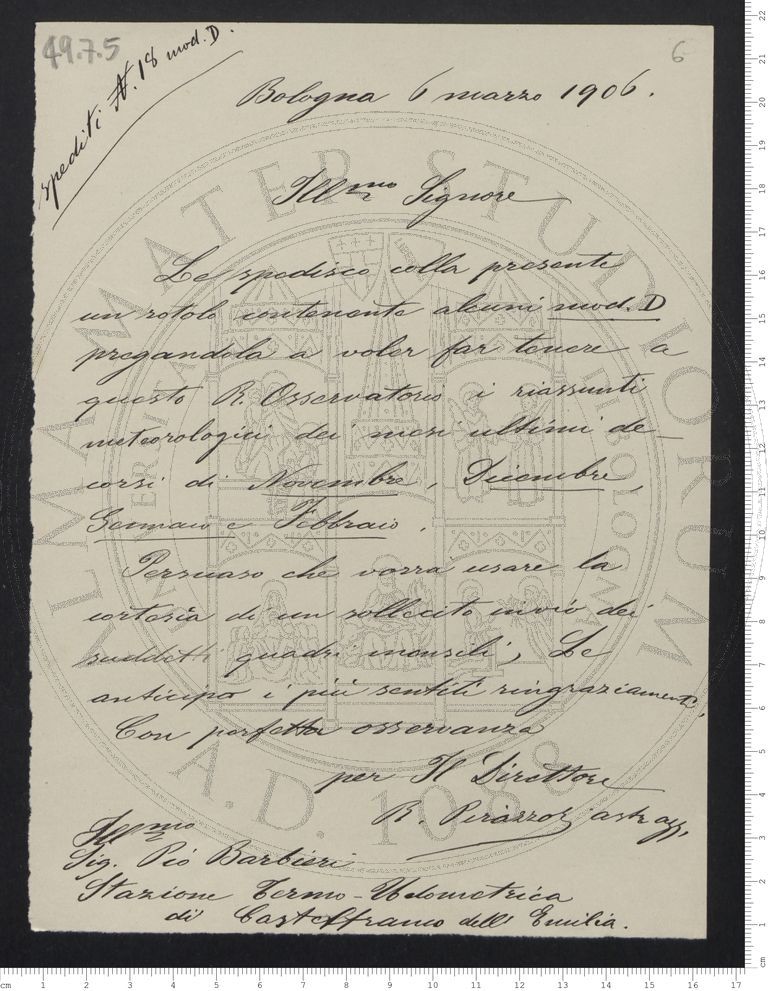 49.7.5
6
spediti N. 18 mod. D.
Bologna 6 marzo 1906.
Ill.mo Signore
Le spedisco colla presente
un rotolo contenente alcuni mod. D
pregandola a voler far tenere a
questo R. Osservatorio i riassunti
meteorologici dei mesi ultimi de-
corsi di Novembre, Dicembre,
Gennaio e Febbraio.
Persuaso che vorrà usare la
cortesia di un sollecito invio dei
suddetti quadri mensili, Le
anticipo i più sentiti ringraziamenti.
Con perfetta osservanza
per Il Direttore
R. Pirazzoli astr. agg.
Ill.mo
Sig. Pió Barbieri
Stazione Termo-Udometrica
di Castelfranco dell' Emilia.
ALMA MATER STUDIORUM
A.D. 1088